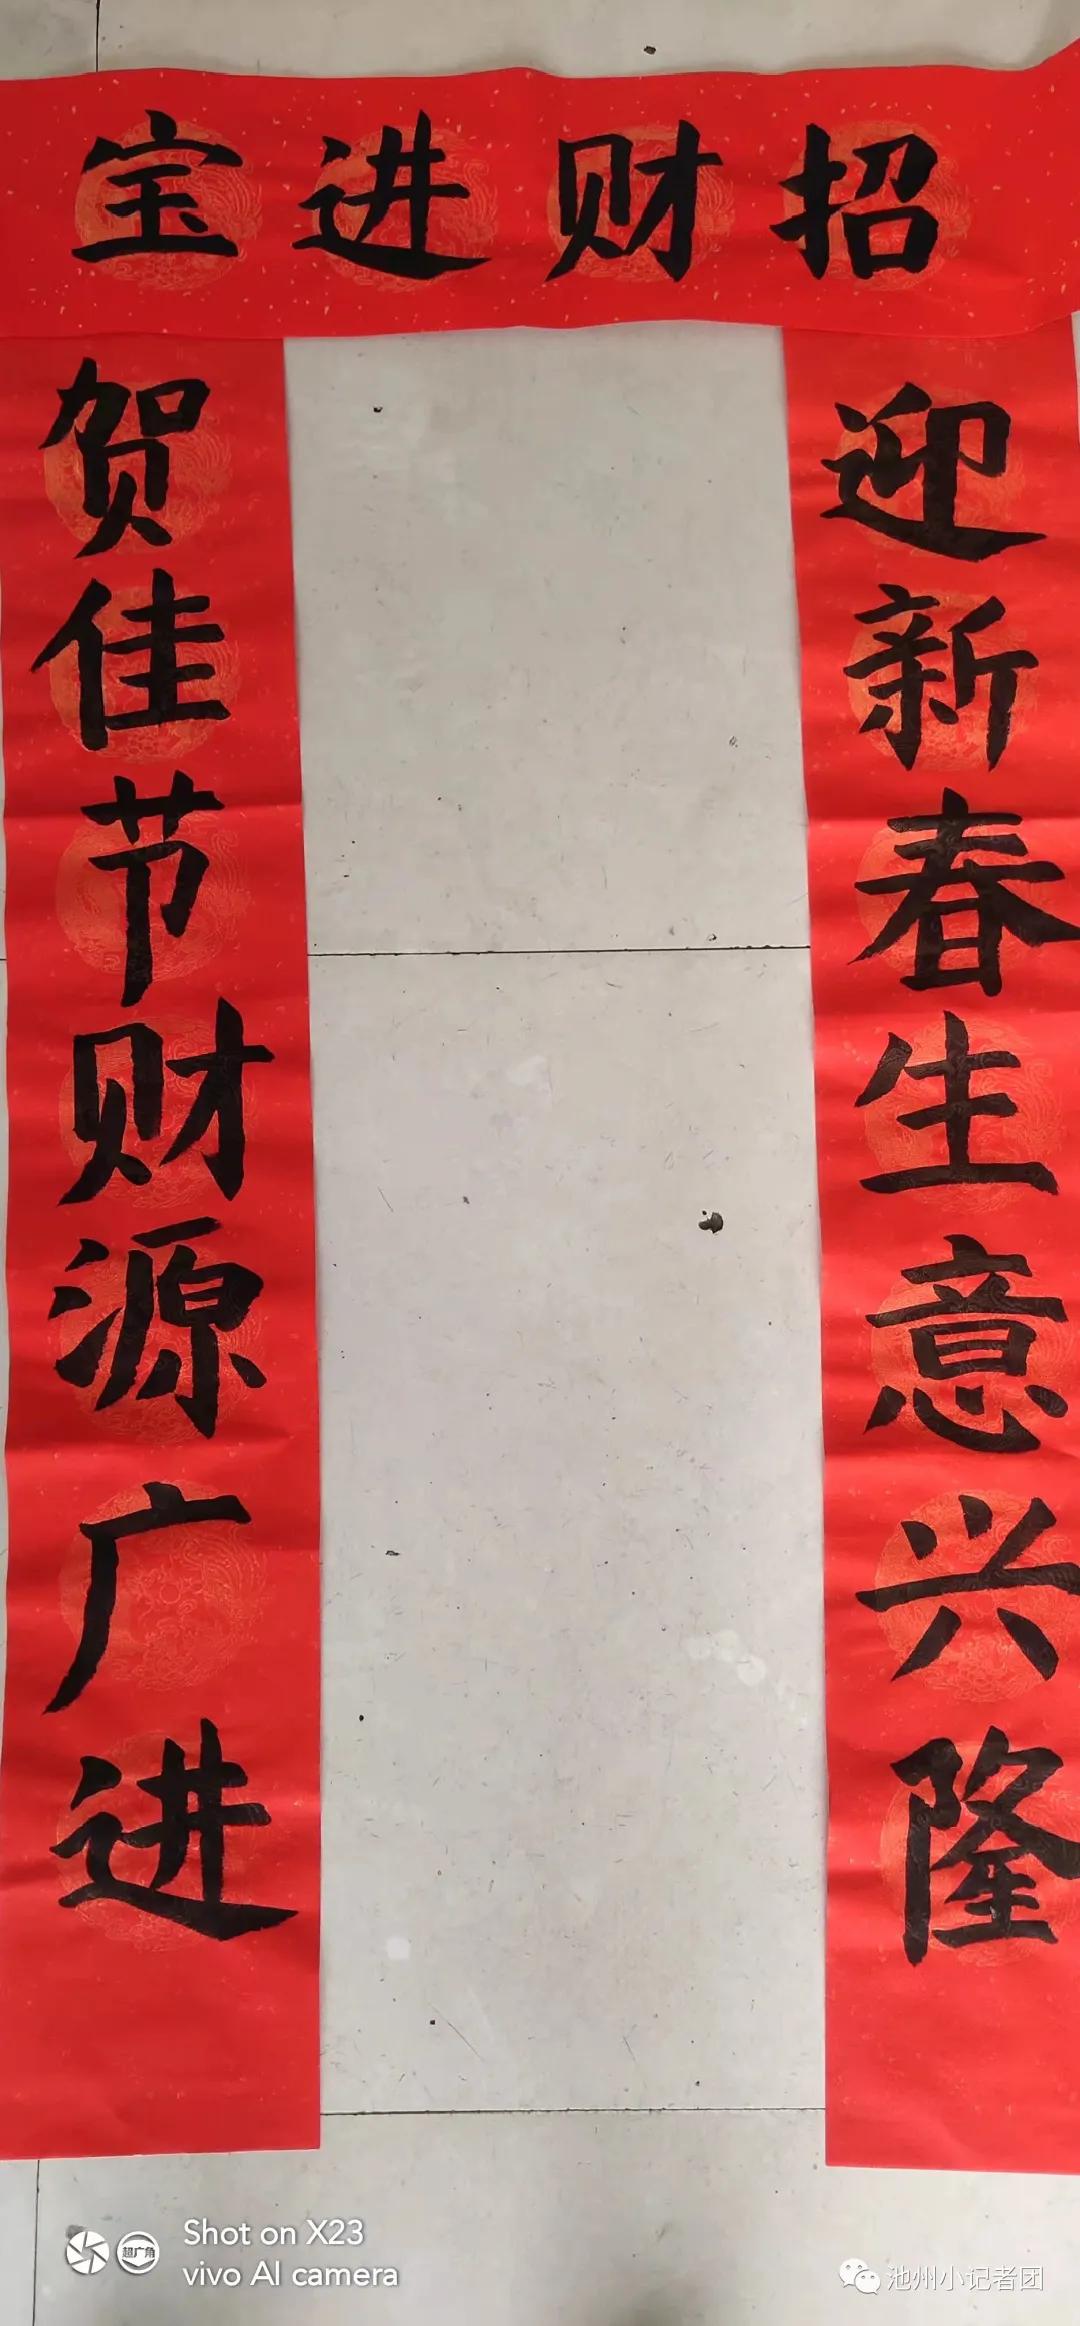 招财进宝
迎新春生意兴隆
贺佳节财源广进
超广角
Shot on X23
vivo AI camera
池州小记者团